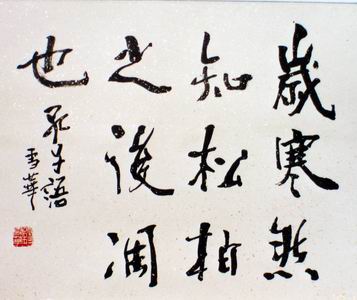 歲寒然
知松柏
之後凋
也
孔子語
雪華